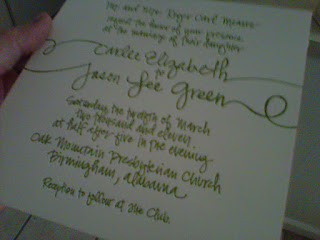 Mr. and Mrs. Roger Carl
request the honor of your presence
at the marriage of their daughter
Carlee Elizabeth
to
Jason Lee Green
Saturday the twelfth of March
two thousand and eleven
at half-after five in the evening
Oak Mountain Presbyterian Church
Birmingham, Alabama
Reception to follow at The Club